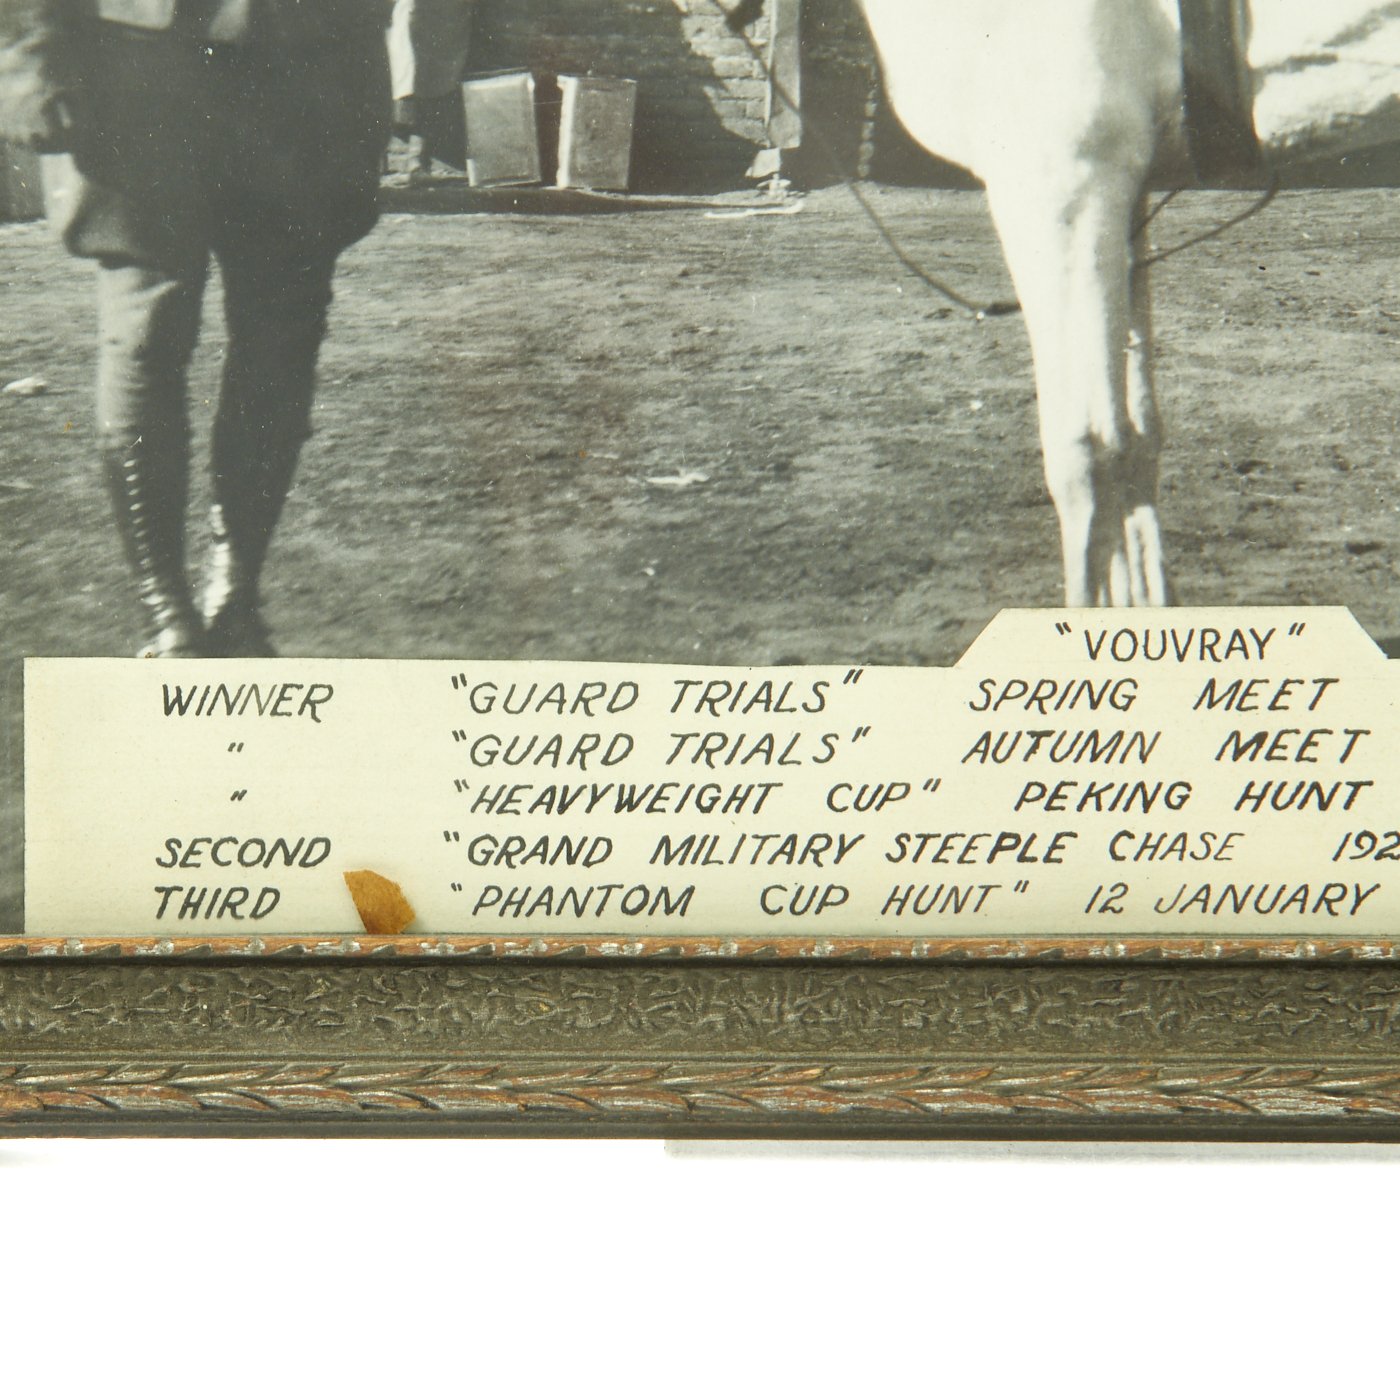 "VOUVRAY"
WINNER "GUARD TRIALS" SPRING MEET
" "GUARD TRIALS" AUTUMN MEET
" "HEAVYWEIGHT CUP" PEKING HUNT
SECOND "GRAND MILITARY STEEPLE CHASE 192
THIRD "PHANTOM CUP HUNT" 12 JANUARY